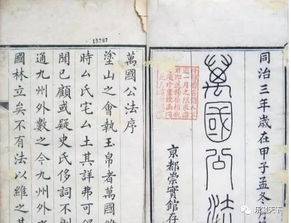 同治三年歲在甲子孟冬
萬國公法
京都崇實館存
萬國公法序
塗山之會執玉帛者萬國
時厶氏宅厶土其詳弗可
聞已顧或疑史氏侈詞不
通九州外數之今九州外
國林立矣不有法以維之